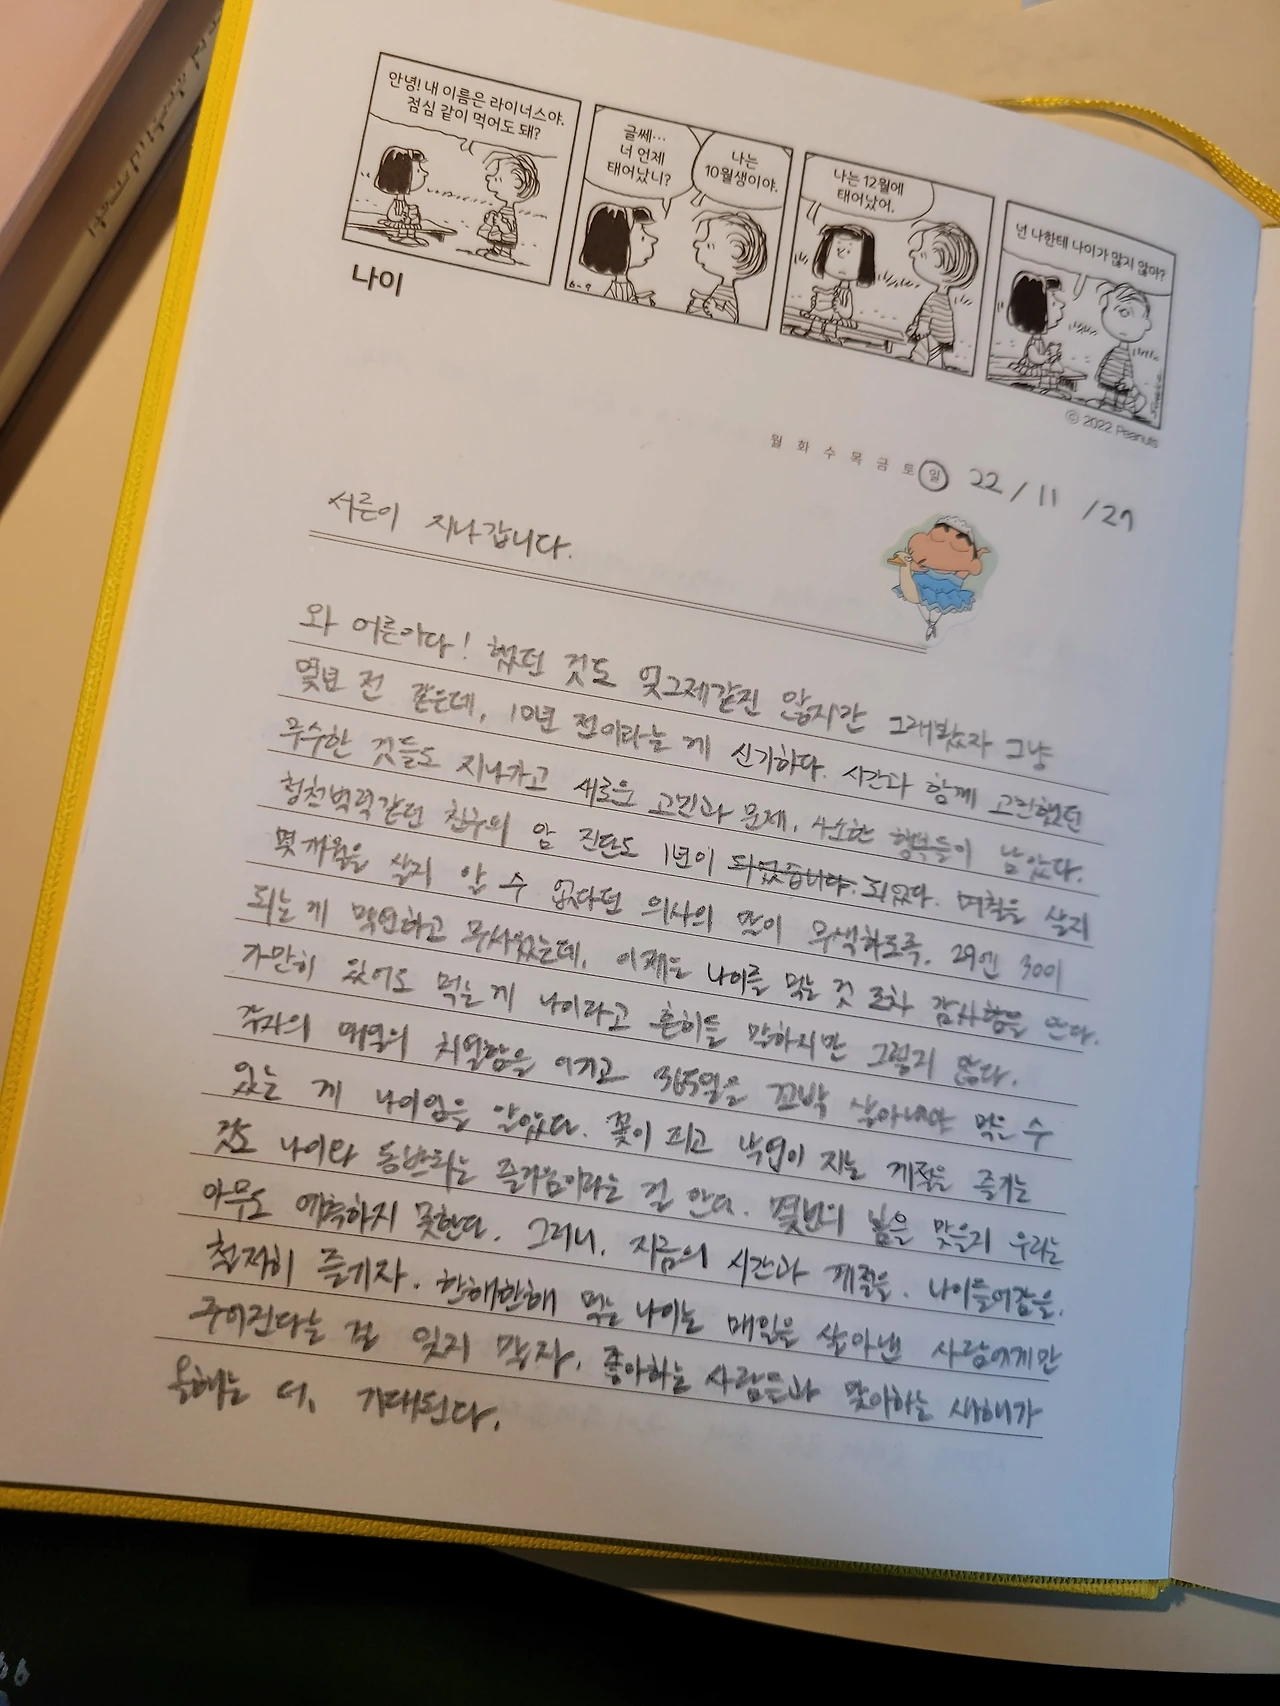 안녕! 내 이름은 라이너스야.
점심 같이 먹어도 돼?
글쎄…
너 언제
태어났니?
나는
10월생이야.
나는 12월에
태어났어.
넌 나한테 나이가 많지 않아?
6-9
나이
© 2022 Peanuts
월 화 수 목 금 토 일 22 / 11 / 27
서른이 지나갑니다.
와 어른이다! 했던 것도 엊그제같진 않지만 그래봤자 그냥
몇년 전 같은데, 10년 전이라는 게 신기하다. 시간과 함께 고민했던
무수한 것들도 지나가고 새로운 고민과 문제, 사소한 행복들이 남았다.
청천벽력같던 친구의 암 진단도 1년이 되었습니다. 되었다. 며칠을 살지
몇개월을 살지 알 수 없다던 의사의 말이 무색하도록. 29엔 30이
되는 게 막연하고 무서웠는데, 이제는 나이를 먹는 것 조차 감사함을 안다.
가만히 있어도 먹는 게 나이라고 흔히들 말하지만 그렇지 않다.
각자의 매일의 치열함을 이기고 365일을 꼬박 살아내야 먹을 수
있는 게 나이임을 알았다. 꽃이 피고 낙엽이 지는 계절을 즐기는
것도 나이와 동반되는 즐거움이라는 걸 안다. 몇번의 봄을 맞을지 우리는
아무도 예측하지 못한다. 그러니, 지금의 시간과 계절을, 나이들어감을,
철저히 즐기자. 한해한해 먹는 나이는 매일을 살아낸 사람에게만
주어진다는 걸 잊지 말자. 좋아하는 사람들과 맞이하는 새해가
올해는 더, 기대된다.